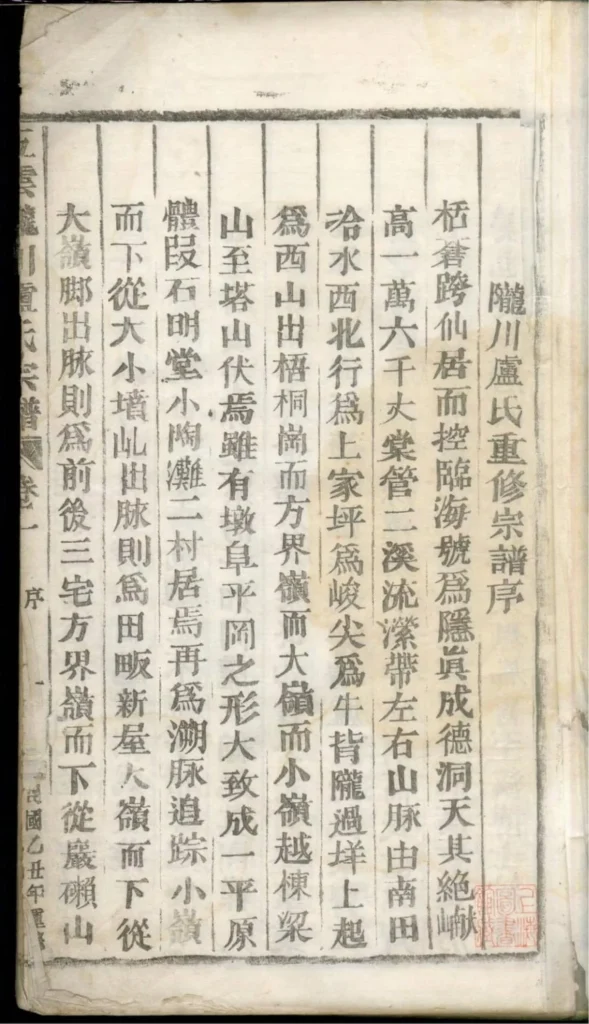 隴川盧氏重修宗譜序
栝蒼跨仙居而控臨海號爲隱眞成德洞天其絶巘
高一萬六千丈棠管二溪流瀠帶左右山脉由南田
冾水西北行爲上家坪爲峻尖爲牛背隴過垟上起
爲西山出梧桐崗而方界嶺而大嶺而小嶺越棟梁
山至塔山伏焉雖有墩阜平岡之形大致成一平原
體段石明堂小陶灘二村居焉再爲溯脉追踪小嶺
而下從大小墳山出脉則爲田畈新屋大嶺而下從
大嶺脚出脉則爲前後三宅方界嶺而下從巖礸山
雲隴川盧氏宗譜 卷一 序 民國乙丑年重修